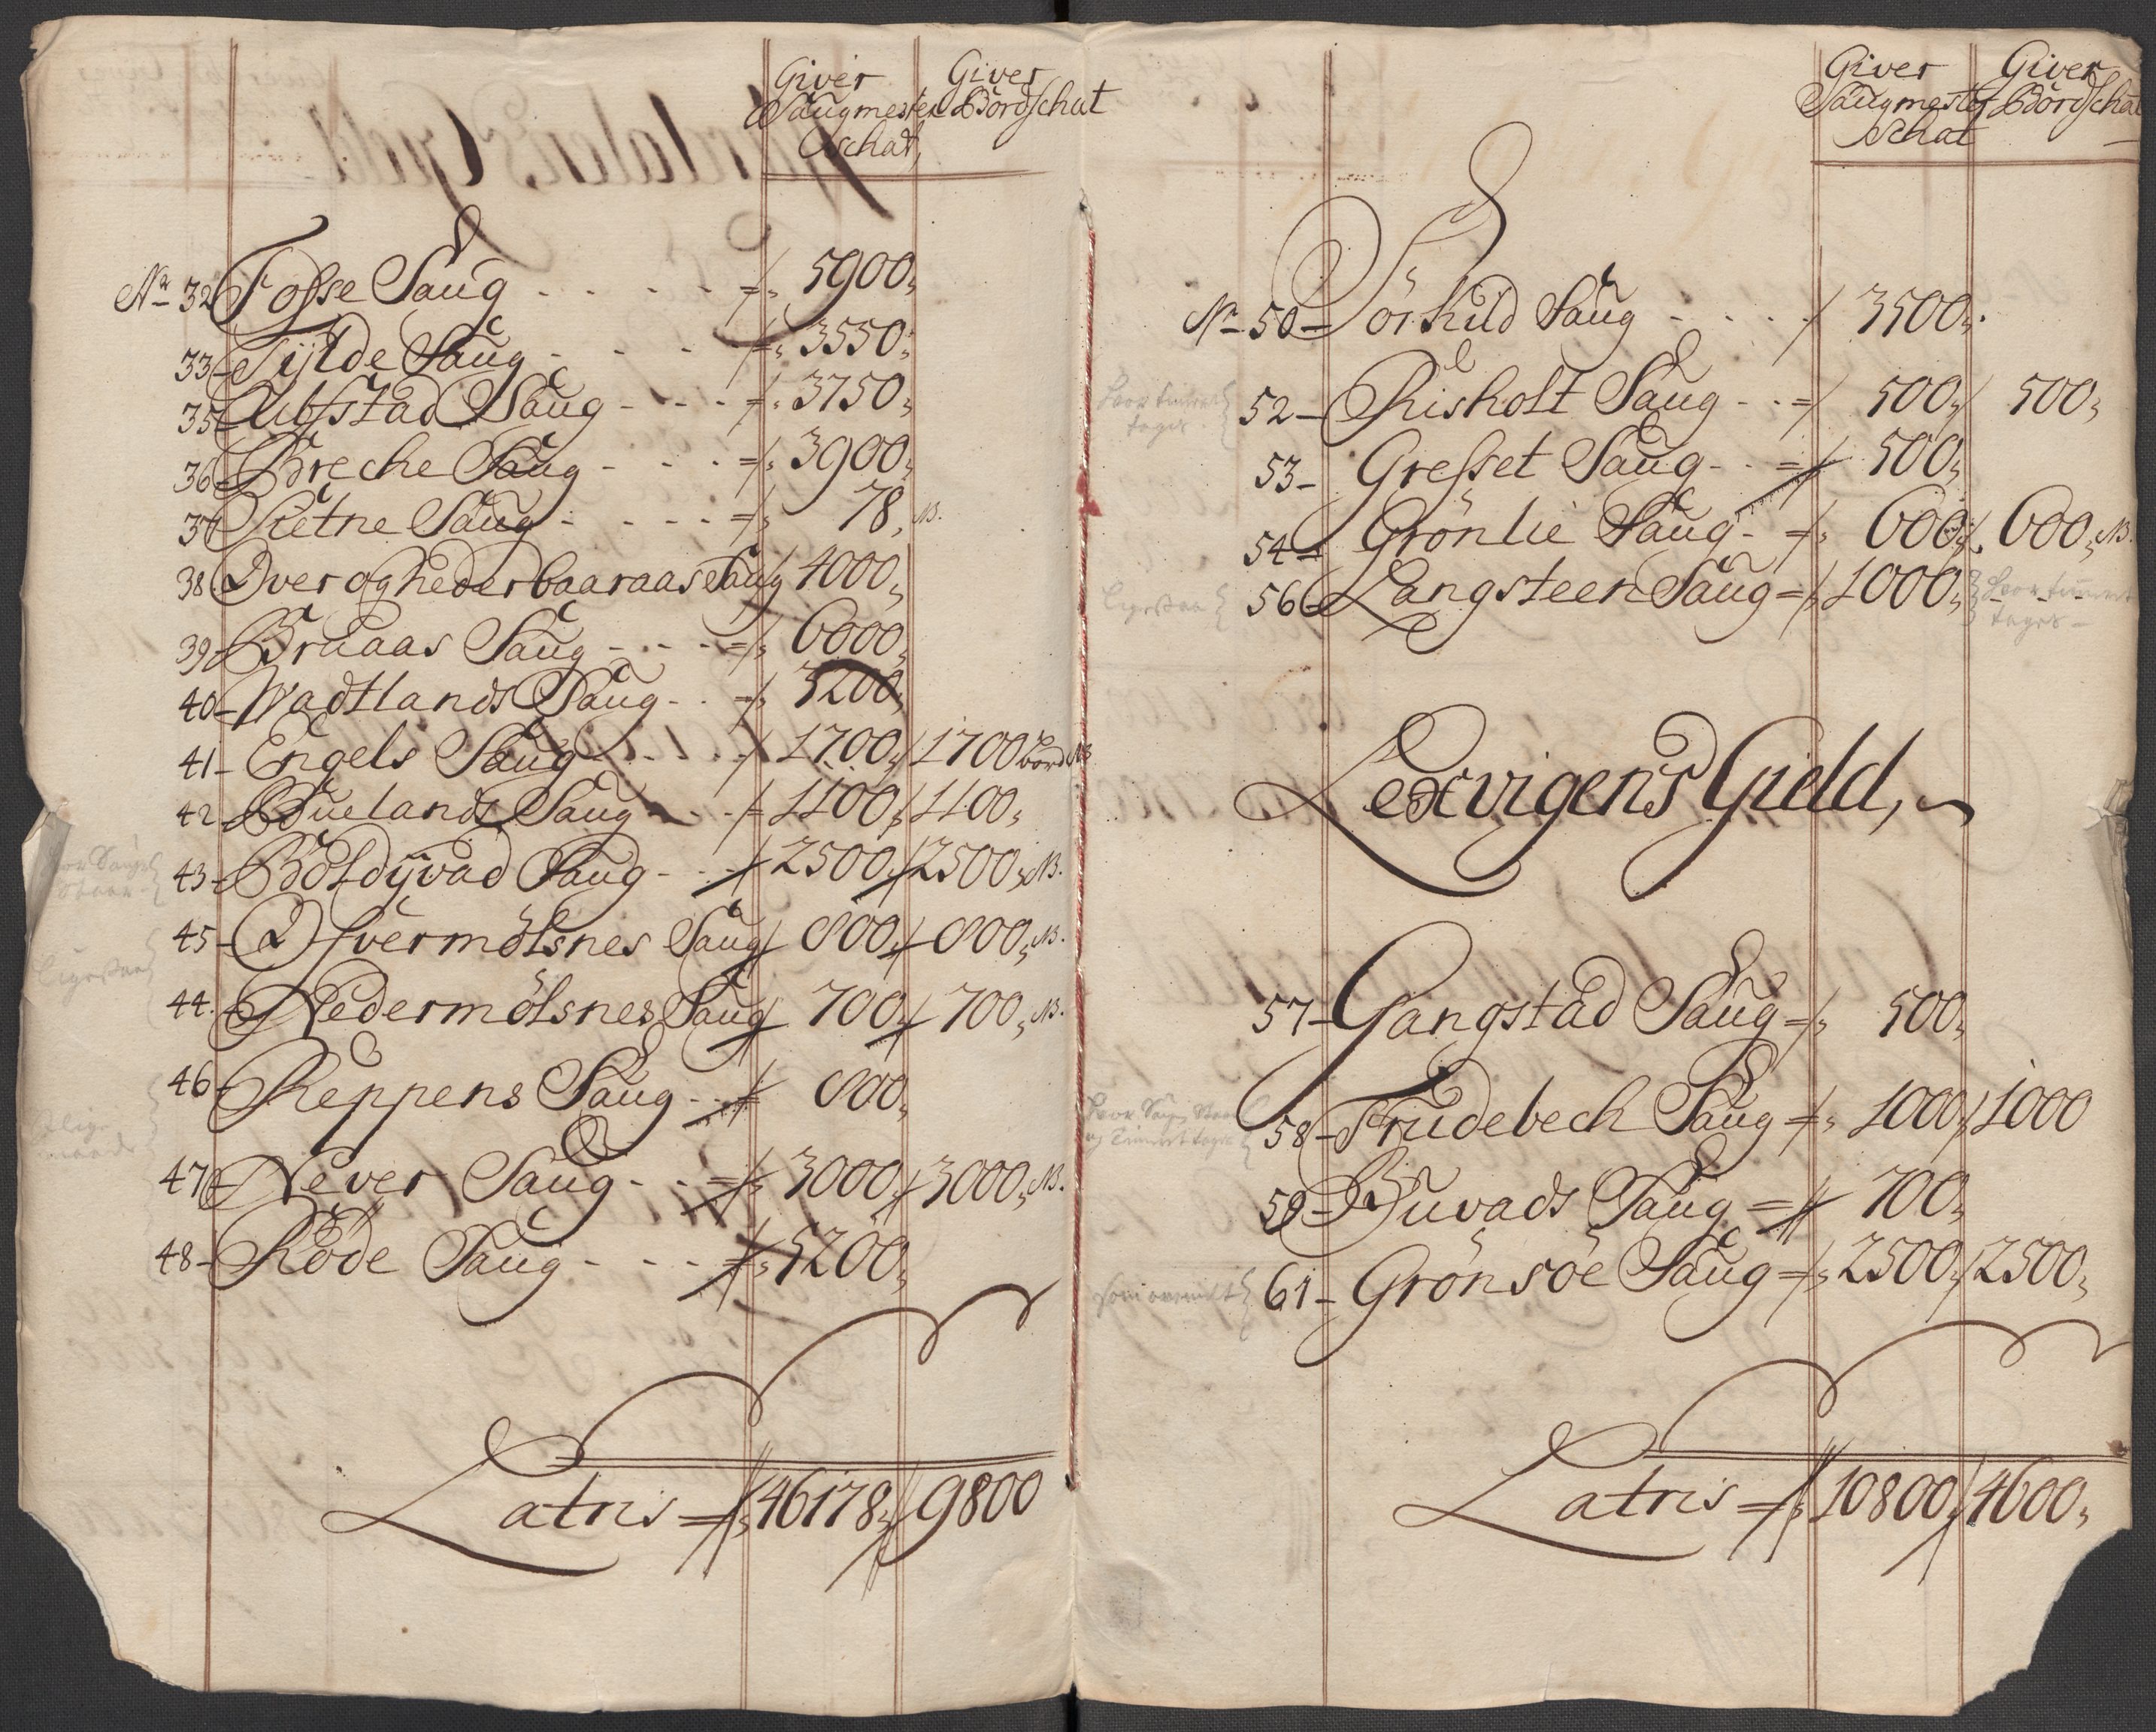 Giver Saugmester schat, Giver Bordschat
No 32 Fosse Saug - - - - 5900,
33 - Tylde Saug - - - 3550,
35 Ulfstad Saug - - - 3750,
36 Breche Saug - - - 3900,
37 Stetne Saug - - - - 78, NB.
38 Over og Nederbaaraas Saug 4000,
39 - Bruaas Saug - - - 6000,
40 - Wadtlands Saug - - 5200,
41 - Engels Saug - - - 1700, 1700 bord NB
42 - Buelands Saug - - 1100, 1100,
43 - Botdyvad Saug - - 2500, 2500, NB.
45 - Ofvermölsnes Saug 800, 800, NB.
44 - Nedermölsnes Saug 700, 700, NB.
46 - Reppens Saug - - 800,
47 - Never Saug - - 3000, 3000, NB.
48 - Röde Saug - - - 5200,
Latris 46178, 9800
Giver Saugmester Schat Giver Bordschat
No 50 - Törkild Saug - - - 3500,
52 - Risholt Saug - - 500, 500,
53 - Gresset Saug - - 500,
54 - Grönlie Saug - 600, 600, NB.
56 Langsteen Saug 1000, - - -
Lexvigens Gield,
57 - Gangstad Saug 500,
58 - Trudebech Saug 1000, 1000
59 - Buvads Saug 700,
61 - Grönsöe Saug 2500, 2500,
Latris 10800, 4600,